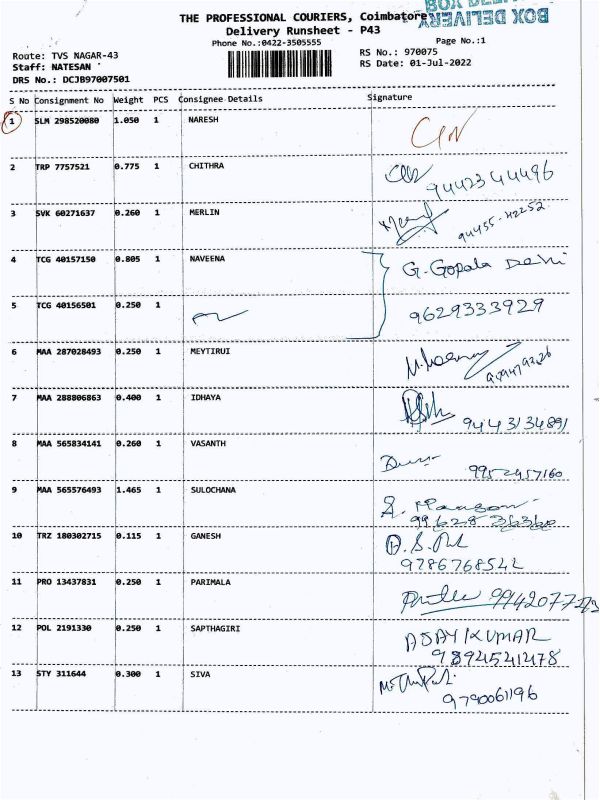 BOX DELIVERY
THE PROFESSIONAL COURIERS, Coimbatore
Delivery Runsheet - P43
Phone No.:0422-3505555
Page No.:1
Route: TVS NAGAR-43
RS No.: 970075
Staff: NATESAN
RS Date: 01-Jul-2022
DRS No.: DCJB97007501
S No Consignment No Weight PCS Consignee Details Signature
1 SLM 298520080 1.050 1 NARESH
2 TRP 7757521 0.775 1 CHITHRA
9442344496
3 SVK 60271637 0.260 1 MERLIN
94455-42252
4 TCG 40157150 0.805 1 NAVEENA G. Gopala Devi
5 TCG 40156501 0.250 1 9629333929
6 MAA 287028493 0.250 1 MEYTIRUI
7 MAA 288806863 0.400 1 IDHAYA
9443134891
8 MAA 565834141 0.260 1 VASANTH
9952457160
9 MAA 565576493 1.465 1 SULOCHANA
10 TRZ 180302715 0.115 1 GANESH
9786768522
11 PRO 13437831 0.250 1 PARIMALA
12 POL 2191330 0.250 1 SAPTHAGIRI AJAYIKUMAR
9894541478
13 STY 311644 0.300 1 SIVA
9790061196